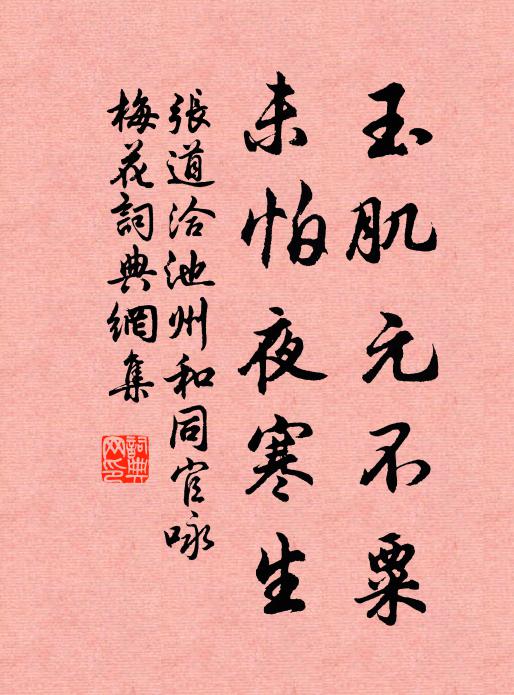 玉肌元不粟
未怕夜寒生
張道洽池州和同官咏
梅花詞典網集
詞典
网印